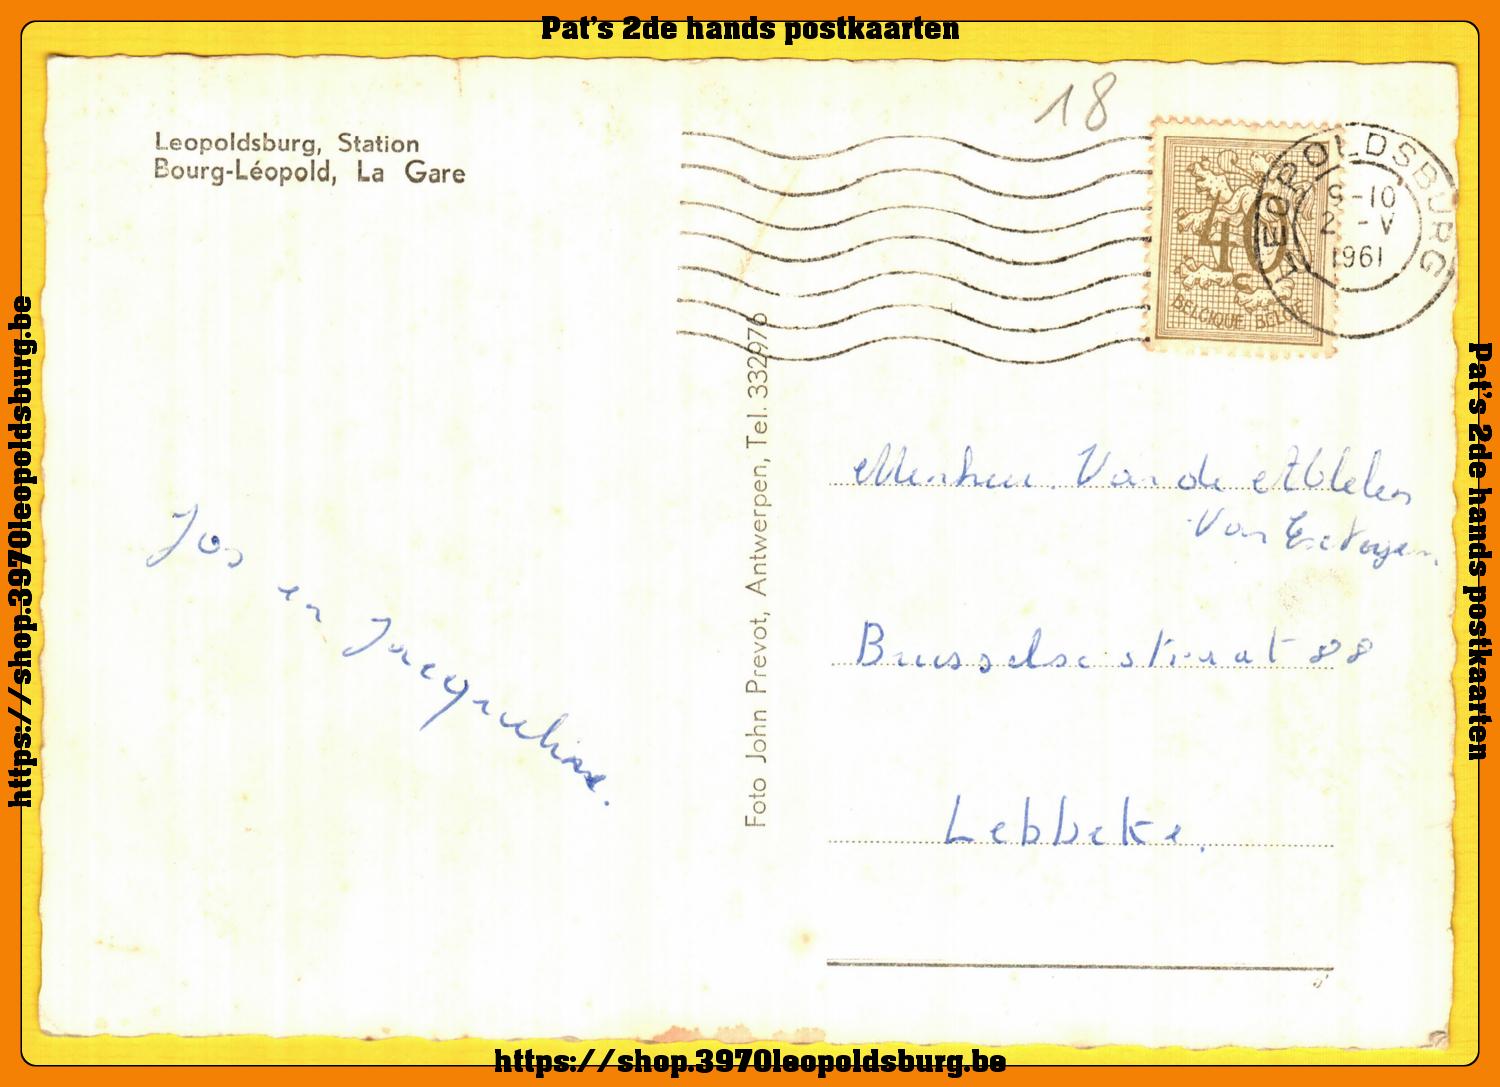 Pat's 2de hands postkaarten
Leopoldsburg, Station
Bourg-Léopold, La Gare
18
LEOPOLDSBURG
9-10
2 - V
1961
40 c
BELGIQUE BELGIE
Foto John Prevot, Antwerpen, Tel. 332976
Van de
Van
Brusselse straat 88
Lebbeke.
Jos en Jacqueline.
https://shop.3970leopoldsburg.be
Pat's 2de hands postkaarten
https://shop.3970leopoldsburg.be